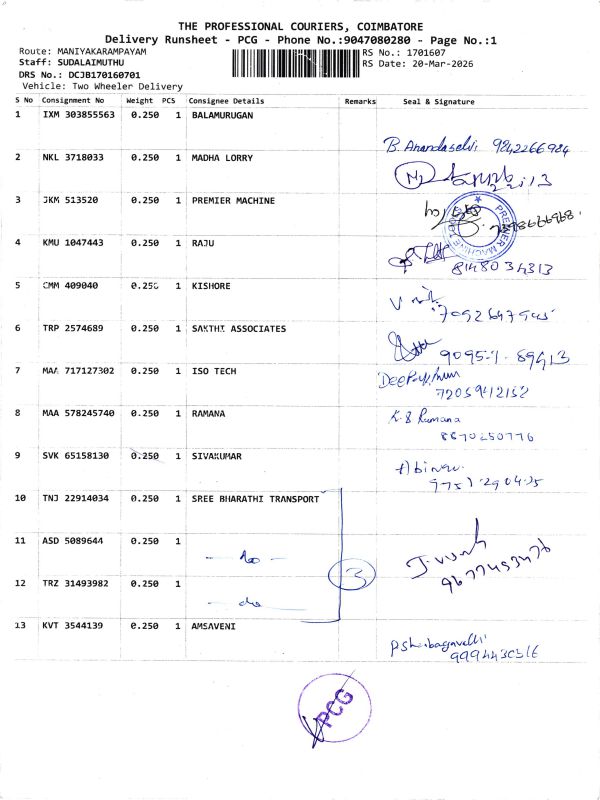 THE PROFESSIONAL COURIERS, COIMBATORE
Delivery Runsheet - PCG - Phone No.:9047080280 - Page No.:1
Route: MANIYAKARAMPAYAM
RS No.: 1701607
Staff: SUDALAIMUTHU
RS Date: 20-Mar-2026
DRS No.: DCJB170160701
Vehicle: Two Wheeler Delivery
S No Consignment No Weight PCS Consignee Details Remarks Seal & Signature
1 IXM 303855563 0.250 1 BALAMURUGAN
B. Anandaselvi 9242266984
2 NKL 3718033 0.250 1 MADHA LORRY
3 JKM 513520 0.250 1 PREMIER MACHINE
PREMIER MACHINE
4 KMU 1047443 0.250 1 RAJU
8148034313
5 CMM 409040 0.250 1 KISHORE
6 TRP 2574689 0.250 1 SAKTHI ASSOCIATES
7 MAA 717127302 0.250 1 ISO TECH
7205912152
8 MAA 578245740 0.250 1 RAMANA
K.S Ramana
8870250776
9 SVK 65158130 0.250 1 SIVAKUMAR
10 TNJ 22914034 0.250 1 SREE BHARATHI TRANSPORT
11 ASD 5089644 0.250 1
- do -
12 TRZ 31493982 0.250 1
- do -
3
9677453476
13 KVT 3544139 0.250 1 AMSAVENI
PCG